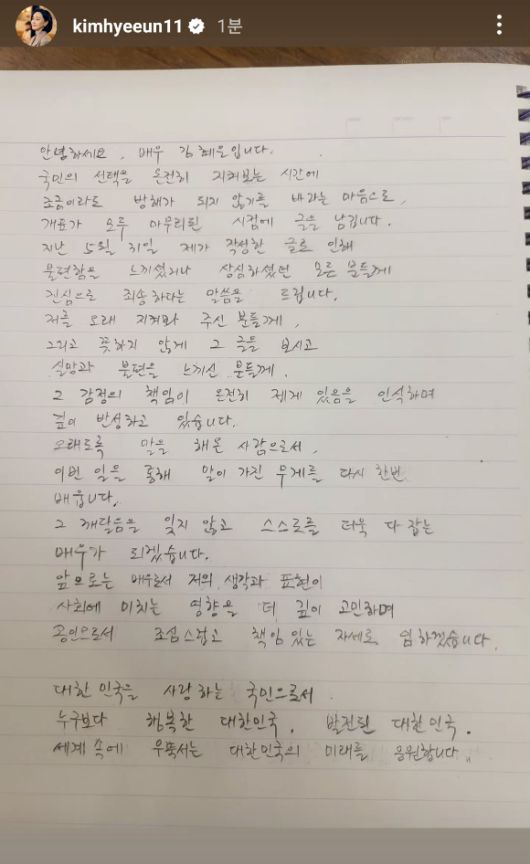 kimhyeeun11 1분
안녕하세요, 배우 김혜은입니다.
국민의 선택을 온전히 지켜보는 시간에
조금이라도 방해가 되지 않기를 바라는 마음으로,
개표가 모두 마무리된 시점에 글을 남깁니다.
지난 5월 31일 제가 작성한 글로 인해
불편함을 느끼셨거나 상심하셨던 모든 분들께
진심으로 죄송하다는 말씀을 드립니다.
저를 오래 지켜봐 주신 분들께,
그리고 뜻하지 않게 그 글을 보시고
실망과 불편을 느끼신 분들께.
그 감정의 책임이 온전히 제게 있음을 인식하며
깊이 반성하고 있습니다.
오래도록 말을 해온 사람으로서,
이번 일을 통해 말이 가진 무게를 다시 한번
배웁니다.
그 깨달음을 잊지 않고 스스로를 더욱 다잡는
배우가 되겠습니다.
앞으로는 배우로서 저의 생각과 표현이
사회에 미치는 영향을 더 깊이 고민하며
공인으로서 조심스럽고 책임 있는 자세로 임하겠습니다.
대한민국을 사랑하는 국민으로서
누구보다 행복한 대한민국, 발전된 대한민국.
세계 속에 우뚝서는 대한민국의 미래를 응원합니다.